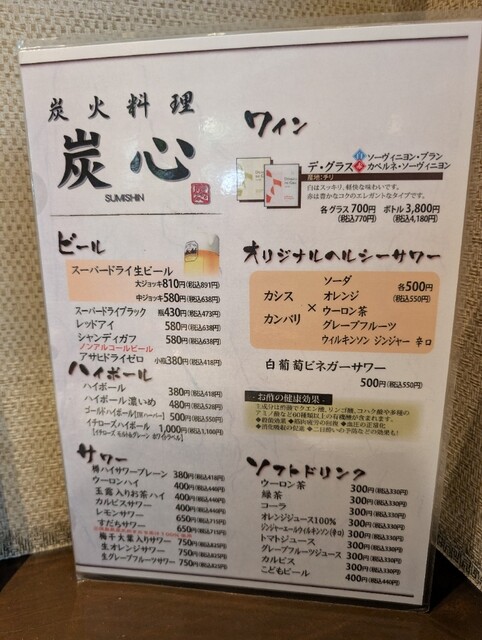 炭火料理
炭心
SUMISHIN
ビール
スーパードライ生ビール
大ジョッキ 810円(税込891円)
中ジョッキ 580円(税込638円)
スーパードライブラック 瓶430円(税込473円)
レッドアイ 580円(税込638円)
シャンディガフ 580円(税込638円)
ノンアルコールビール
アサヒドライゼロ 小瓶380円(税込418円)
ハイボール
ハイボール 380円(税込418円)
ハイボール濃いめ 480円(税込528円)
ゴールドハイボール【IWハーパー】 500円(税込550円)
イチローズハイボール 1,000円(税込1,100円)
【イチローズ モルト&グレーン ホワイトラベル】
サワー
樽ハイサワープレーン 380円(税込418円)
ウーロンハイ 400円(税込440円)
玉露入りお茶ハイ 400円(税込440円)
カルピスサワー 400円(税込440円)
レモンサワー 650円(税込715円)
すだちサワー 650円(税込715円)
梅干大葉入りサワー 750円(税込825円)
生オレンジサワー 750円(税込825円)
生グレープフルーツサワー 750円(税込825円)
ワイン
デ・グラス 白 ソーヴィニヨン・ブラン
赤 カベルネ・ソーヴィニヨン
産地:チリ
白はスッキリ、軽快な味わいです。
赤は豊かなコクのエレガントなタイプです。
各グラス700円 ボトル3,800円
(税込770円) (税込4,180円)
オリジナルヘルシーサワー
カシス
カンパリ
×
ソーダ
オレンジ
ウーロン茶
グレープフルーツ
ウィルキンソン ジンジャー 辛口
各500円
(税込550円)
白葡萄ビネガーサワー
500円(税込550円)
- お酢の健康効果 -
ソフトドリンク
ウーロン茶 300円(税込330円)
緑茶 300円(税込330円)
コーラ 300円(税込330円)
オレンジジュース100% 300円(税込330円)
ジンジャーエールウィルキンソン(辛口) 300円(税込330円)
トマトジュース 300円(税込330円)
グレープフルーツジュース 300円(税込330円)
カルピス 300円(税込330円)
こどもビール 400円(税込440円)